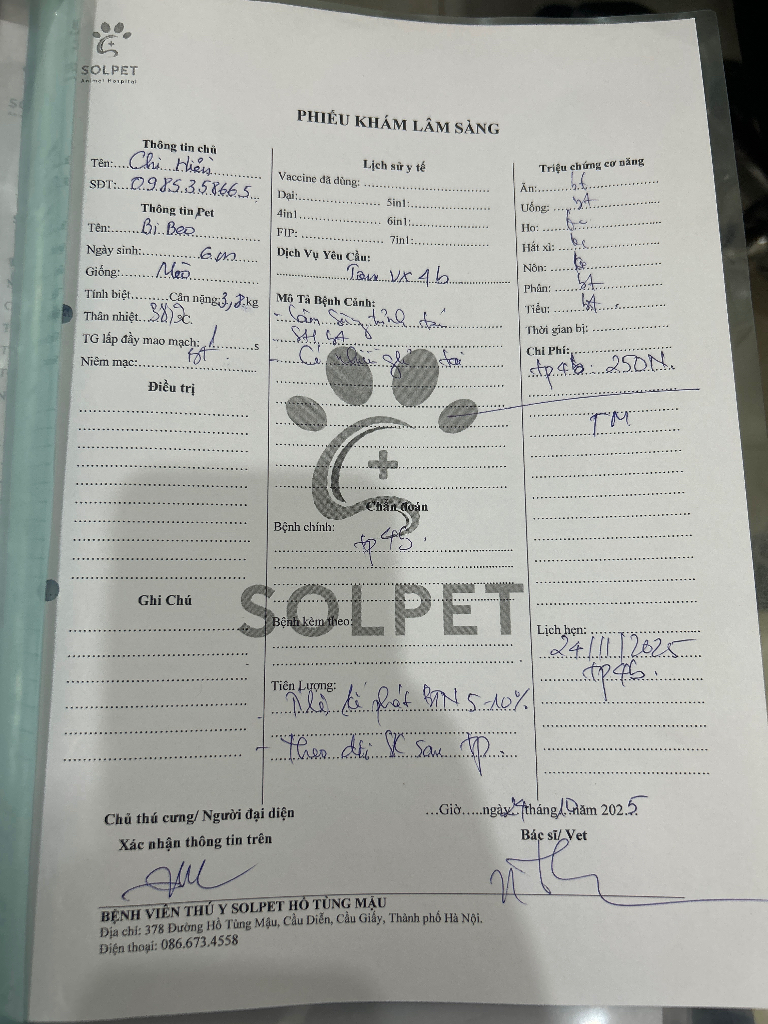 SOLPET
Animal Hospital
PHIẾU KHÁM LÂM SÀNG
Thông tin chủ
Tên: Chị Hiền
SĐT: 0985358665
Thông tin Pet
Tên: Bi Beo
Ngày sinh: 6m
Giống: Mèo
Tính biệt Cân nặng: 3,8 kg
Thân nhiệt 38,2c
TG lấp đầy mao mạch: 1 s
Niêm mạc: bt
Điều trị
Ghi Chú
Lịch sử y tế
Vaccine đã dùng:
Dại: 5in1:
4in1 6in1:
FIP: 7in1:
Dịch Vụ Yêu Cầu:
Tiêm vx 4b
Mô Tả Bệnh Cảnh:
- Lâm sàng tỉnh táo
SH bt
- Có
Chẩn đoán
Bệnh chính:
tp 4b.
SOLPET
Bệnh kèm theo:
Tiên Lượng:
kế phát BTN 5-10%
- Theo dõi SK sau tp.
Triệu chứng cơ năng
Ăn: bt
Uống: bt
Ho: ko
Hắt xì: ko
Nôn: ko
Phân: bt
Tiểu: bt
Thời gian bị:
Chi Phí:
tp4b: 250N.
TM
Lịch hẹn:
24/11/2025
tp4b.
Chủ thú cưng/ Người đại diện
Xác nhận thông tin trên
...Giờ.....ngày 24 tháng 10 năm 2025
Bác sĩ/ Vet
BỆNH VIỆN THÚ Y SOLPET HỒ TÙNG MẬU
Địa chỉ: 378 Đường Hồ Tùng Mậu, Cầu Diễn, Cầu Giấy, Thành phố Hà Nội.
Điện thoại: 086.673.4558